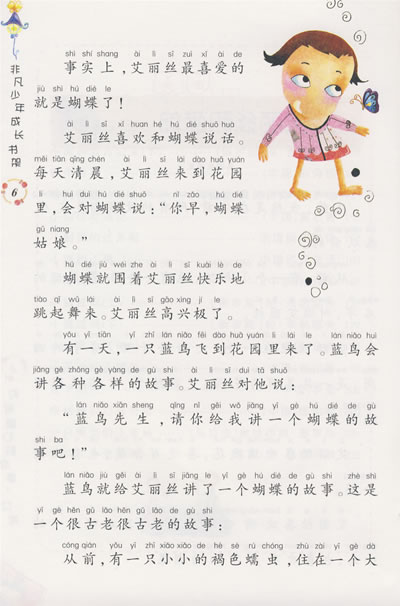 非凡少年成长书架
6
shì shí shang ài lì sī zuì xǐ ài de
事实上，艾丽丝最喜爱的
jiù shì hú dié le
就是蝴蝶了！
ài lì sī xǐ huan hé hú dié shuō huà
艾丽丝喜欢和蝴蝶说话。
měi tiān qīng chén ài lì sī lái dào huā yuán
每天清晨，艾丽丝来到花园
lǐ huì duì hú dié shuō nǐ zǎo hú dié
里，会对蝴蝶说：“你早，蝴蝶
gū niang
姑娘。”
hú dié jiù wéi zhe ài lì sī kuài lè de
蝴蝶就围着艾丽丝快乐地
tiào qǐ wǔ lái ài lì sī gāo xìng jí le
跳起舞来。艾丽丝高兴极了。
yǒu yī tiān yī zhī lán niǎo fēi dào huā yuán lǐ lái le lán niǎo huì
有一天，一只蓝鸟飞到花园里来了。蓝鸟会
jiǎng gè zhǒng gè yàng de gù shi ài lì sī duì tā shuō
讲各种各样的故事。艾丽丝对他说：
lán niǎo xiān sheng qǐng nǐ gěi wǒ jiǎng yī gè hú dié de gù
“蓝鸟先生，请你给我讲一个蝴蝶的故
shi ba
事吧！”
lán niǎo jiù gěi ài lì sī jiǎng le yī gè hú dié de gù shi zhè shì
蓝鸟就给艾丽丝讲了一个蝴蝶的故事。这是
yī gè hěn gǔ lǎo hěn gǔ lǎo de gù shi
一个很古老很古老的故事：
cóng qián yǒu yī zhī xiǎo xiǎo de hè sè rú chóng zhù zài yī gè dà
从前，有一只小小的褐色蠕虫，住在一个大